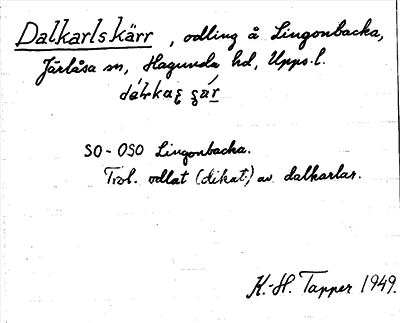 Dalkarlskärr, odling å Lingonbacka,
Järlåsa sn, Hagunda hd, Upps. l.
SO-OSO Lingonbacka.
Trol. odlat (dikat) av dalkarlar.
K.-H. Tapper 1949.